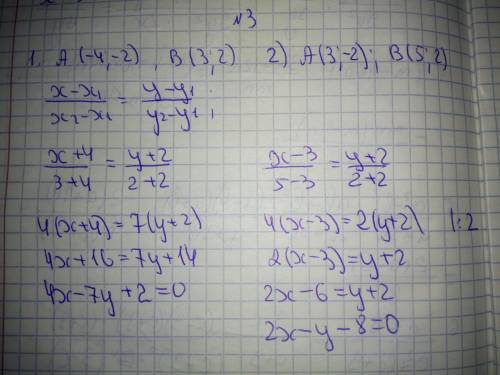 №3
1. A (-4,-2) , B (3; 2) 2) A (3;-2); B (5; 2)
(x-x₁)/(x₂-x₁) = (y-y₁)/(y₂-y₁) ;
(x+4)/(3+4) = (y+2)/(2+2) (x-3)/(5-3) = (y+2)/(2+2)
4(x+4)=7(y+2) 4(x-3)=2(y+2) |:2
4x+16=7y+14 2(x-3)=y+2
4x-7y+2=0 2x-6=y+2
2x-y-8=0